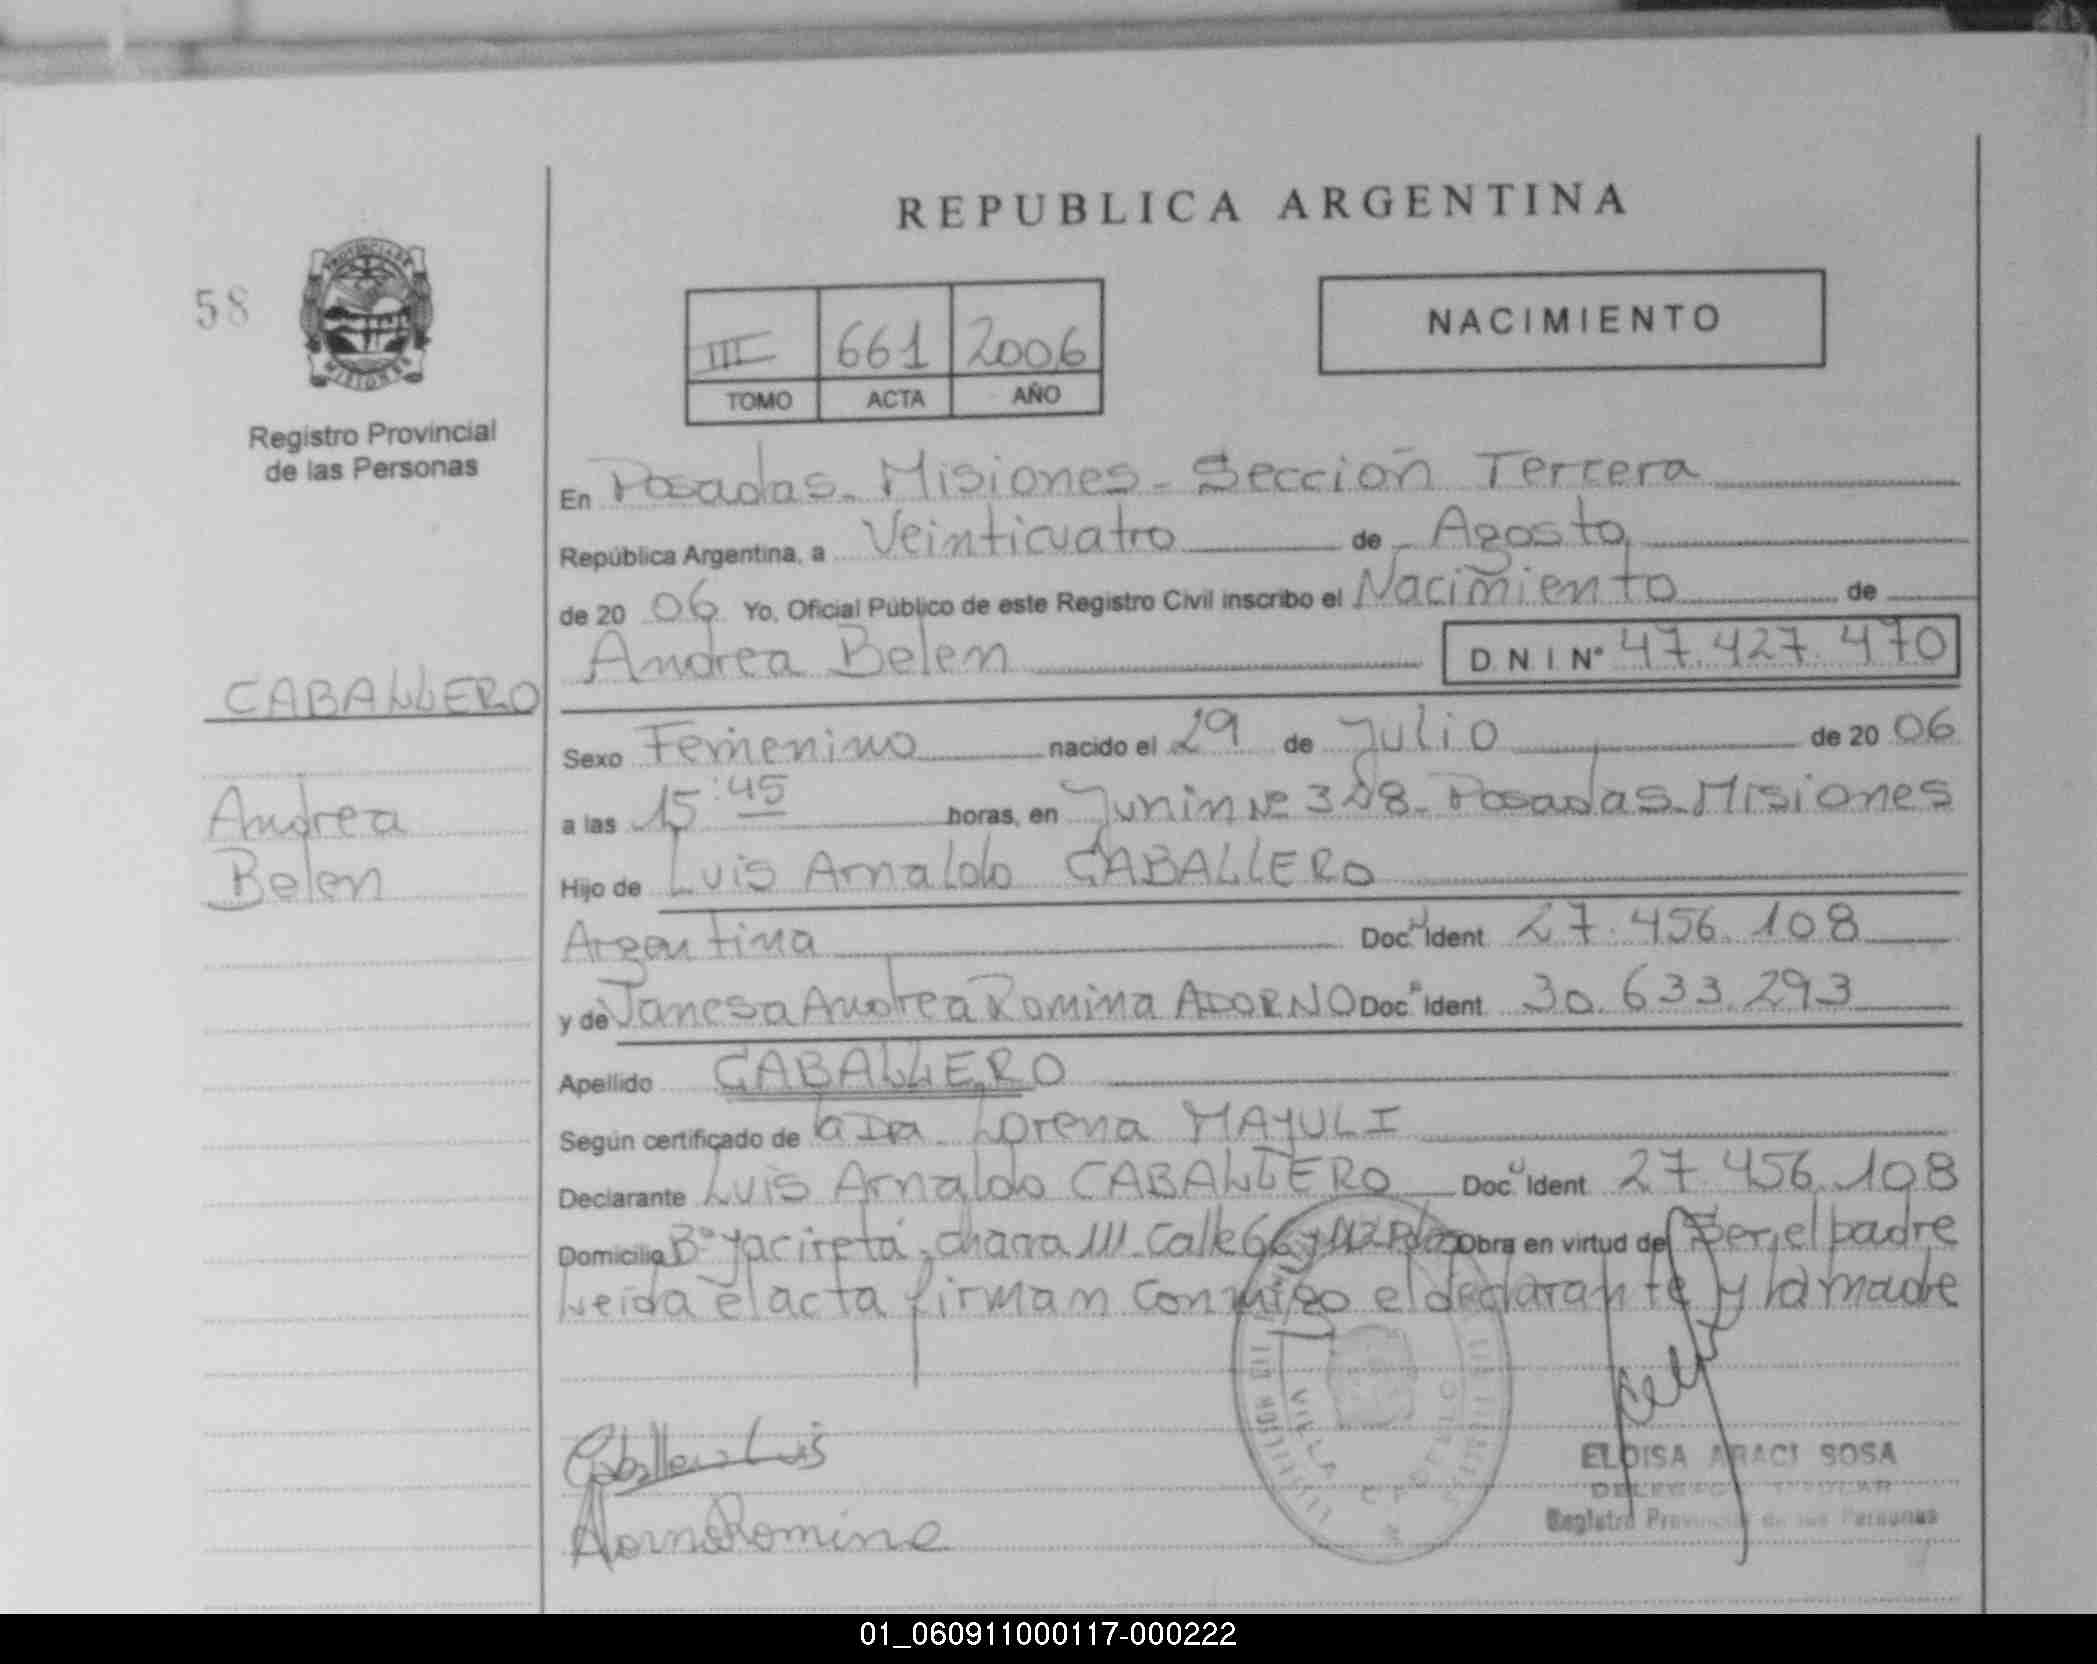 REPUBLICA ARGENTINA
58
PROVINCIA DE
MISIONES
Registro Provincial
de las Personas
III 661 2006
TOMO ACTA AÑO
NACIMIENTO
En Posadas - Misiones - Sección Tercera
República Argentina, a Veinticuatro de Agosto
de 20 06 Yo, Oficial Público de este Registro Civil inscribo el Nacimiento de
Andrea Belen D N I Nº 47.427.470
CABALLERO
Andrea
Belen
Sexo Femenino nacido el 29 de Julio de 20 06
a las 15:45 horas, en Junin Nº Posadas - Misiones
Hijo de Luis Arnaldo CABALLERO
Argentina Doc. Ident 27.456.108
y de Vanesa Andrea Romina ADORNO Doc. Ident 30.633.293
Apellido CABALLERO
Según certificado de la Dra. Lorena MAYULI
Declarante Luis Arnaldo CABALLERO Doc. Ident 27.456.108
Domicilio Bº Yacireta, chacra 111 Calle 66 y Obra en virtud de Ser el padre
Leida el acta firman conmigo el declarante y la madre
Caballero Luis
Adorno Romina
ELOISA ARACI SOSA
Registro Provincial de las Personas
01_060911000117-000222